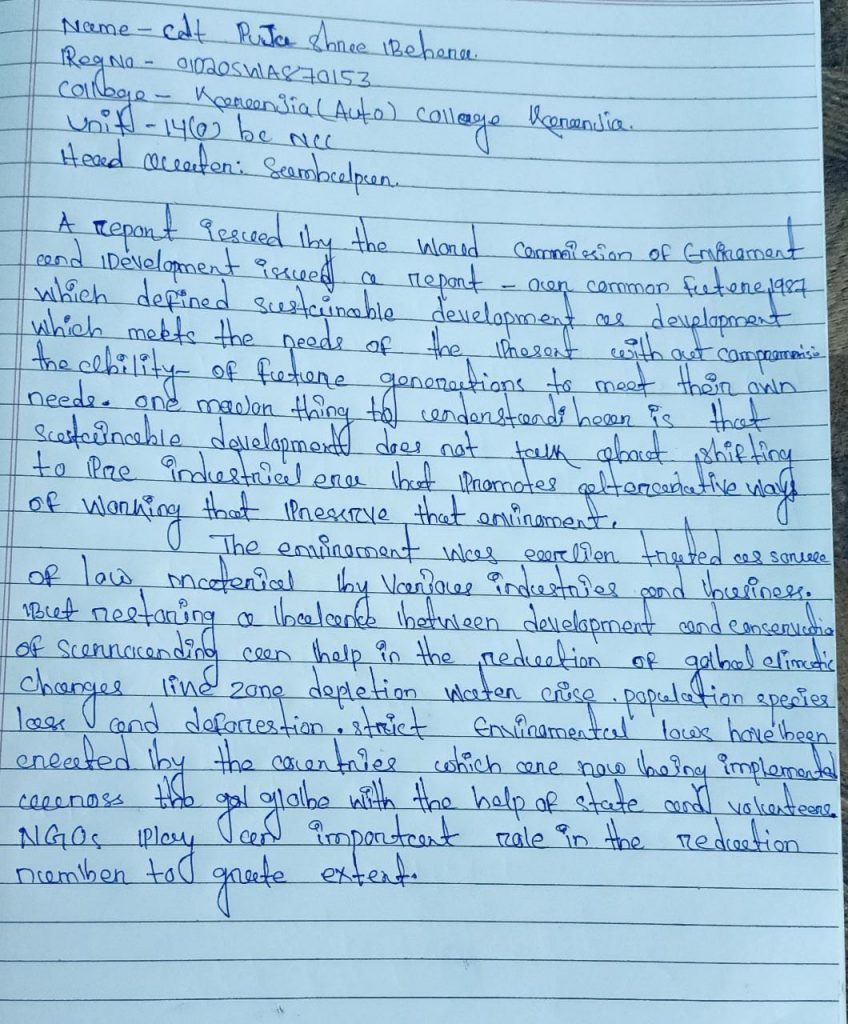 Name - Cdt Puja Shree Behera.
Reg No - OD20SWA870153
College - Kareanjia (Auto) College Karanjia.
Unit - 14(O) bc NCC
Head quarter: Sambalpur.
A report issued by the World Commission of Envirament
and Development issued a report - our common future, 1987
which defined sustainable development as development
which meets the needs of the present with out compromisi
the ability of future generations to meet their own
needs. one major thing to understand hear is that
sustainable development does not talk about shifting
to Pre industrical era but Promotes alternative ways
of working that Preserve that envirament.
The envirament was earlier treated as source
of law material by Various industries and business.
But restoring a balance between development and conservatio
of surrounding can help in the reduction of golbal climatic
Changes line zone depletion water crise. population species
loss and deforestion. strict Enviramental lows have been
enected by the countries which are now being implemented
accross the gol globe with the help of state and volunteers.
NGOs Play an important role in the reduction
number to greate extent.